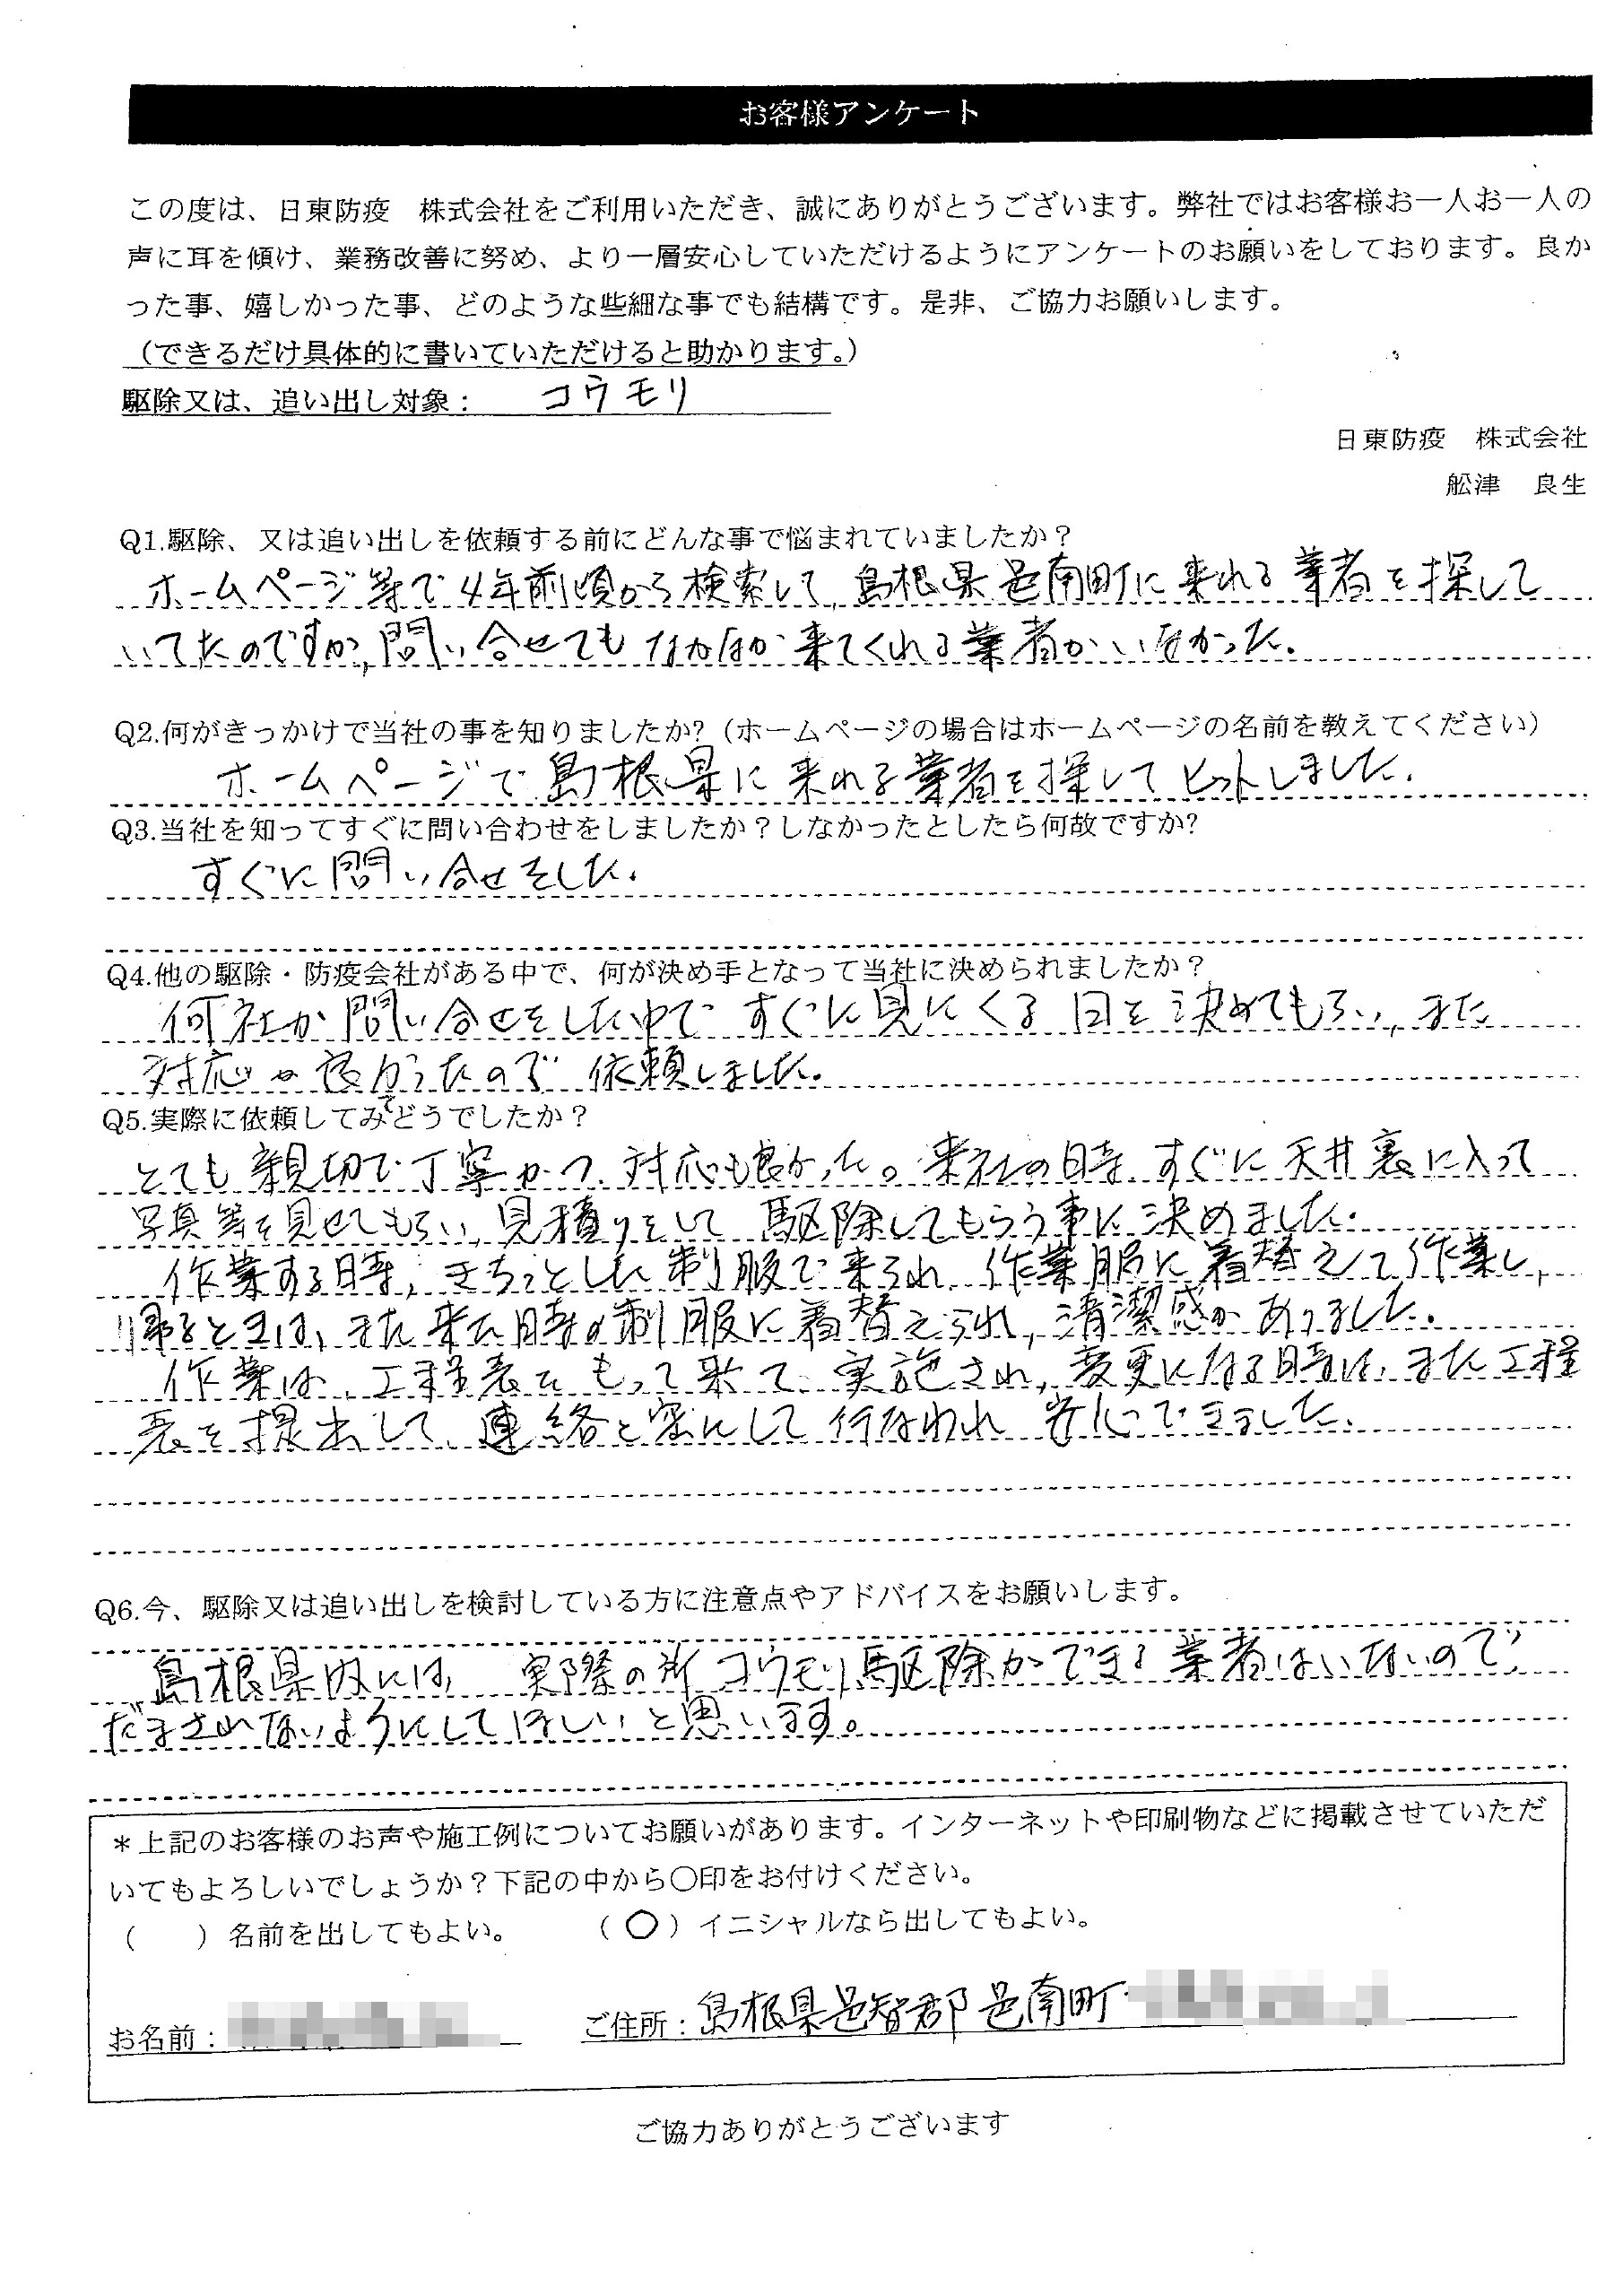 お客様アンケート
この度は、日東防疫　株式会社をご利用いただき、誠にありがとうございます。弊社ではお客様お一人お一人の
声に耳を傾け、業務改善に努め、より一層安心していただけるようにアンケートのお願いをしております。良か
った事、嬉しかった事、どのような些細な事でも結構です。是非、ご協力お願いします。
（できるだけ具体的に書いていただけると助かります。）
駆除又は、追い出し対象：　コウモリ
日東防疫　株式会社
舩津　良生
Q1.駆除、又は追い出しを依頼する前にどんな事で悩まれていましたか？
ホームページ等で4年前頃から検索して、島根県邑南町に来れる業者を探して
いてたのですが、問い合せてもなかなか来てくれる業者がいなかった。
Q2.何がきっかけで当社の事を知りましたか?（ホームページの場合はホームページの名前を教えてください）
ホームページで島根県に来れる業者を探してヒットしました。
Q3.当社を知ってすぐに問い合わせをしましたか？しなかったとしたら何故ですか?
すぐに問い合せをした。
Q4.他の駆除・防疫会社がある中で、何が決め手となって当社に決められましたか？
何社か問い合せをした中で すぐに見にくる日を決めてもらい、また
対応が良かったので 依頼しました。
Q5.実際に依頼してみてどうでしたか？
とても親切で丁寧かつ、対応も良かった。来社の時、すぐに天井裏に入って
写真等を見せてもらい、見積りをして 駆除してもらう事に決めました。
作業する時、きちっとした制服で来られ、作業服に着替えて作業し、
帰るときは、また来た時の制服に着替えられ、清潔感がありました。
作業は、工程表をもって来て、実施され、変更になる時は、また工程
表を提出して、連絡を密にして行なわれ 安心できました。
Q6.今、駆除又は追い出しを検討している方に注意点やアドバイスをお願いします。
島根県内には、実際の所コウモリ駆除ができる業者はいないので
だまされないようにしてほしいと思います。
＊上記のお客様のお声や施工例についてお願いがあります。インターネットや印刷物などに掲載させていただ
いてもよろしいでしょうか？下記の中から〇印をお付けください。
（　　）名前を出してもよい。　（〇）イニシャルなら出してもよい。
お名前：　ご住所：島根県邑智郡邑南町
ご協力ありがとうございます